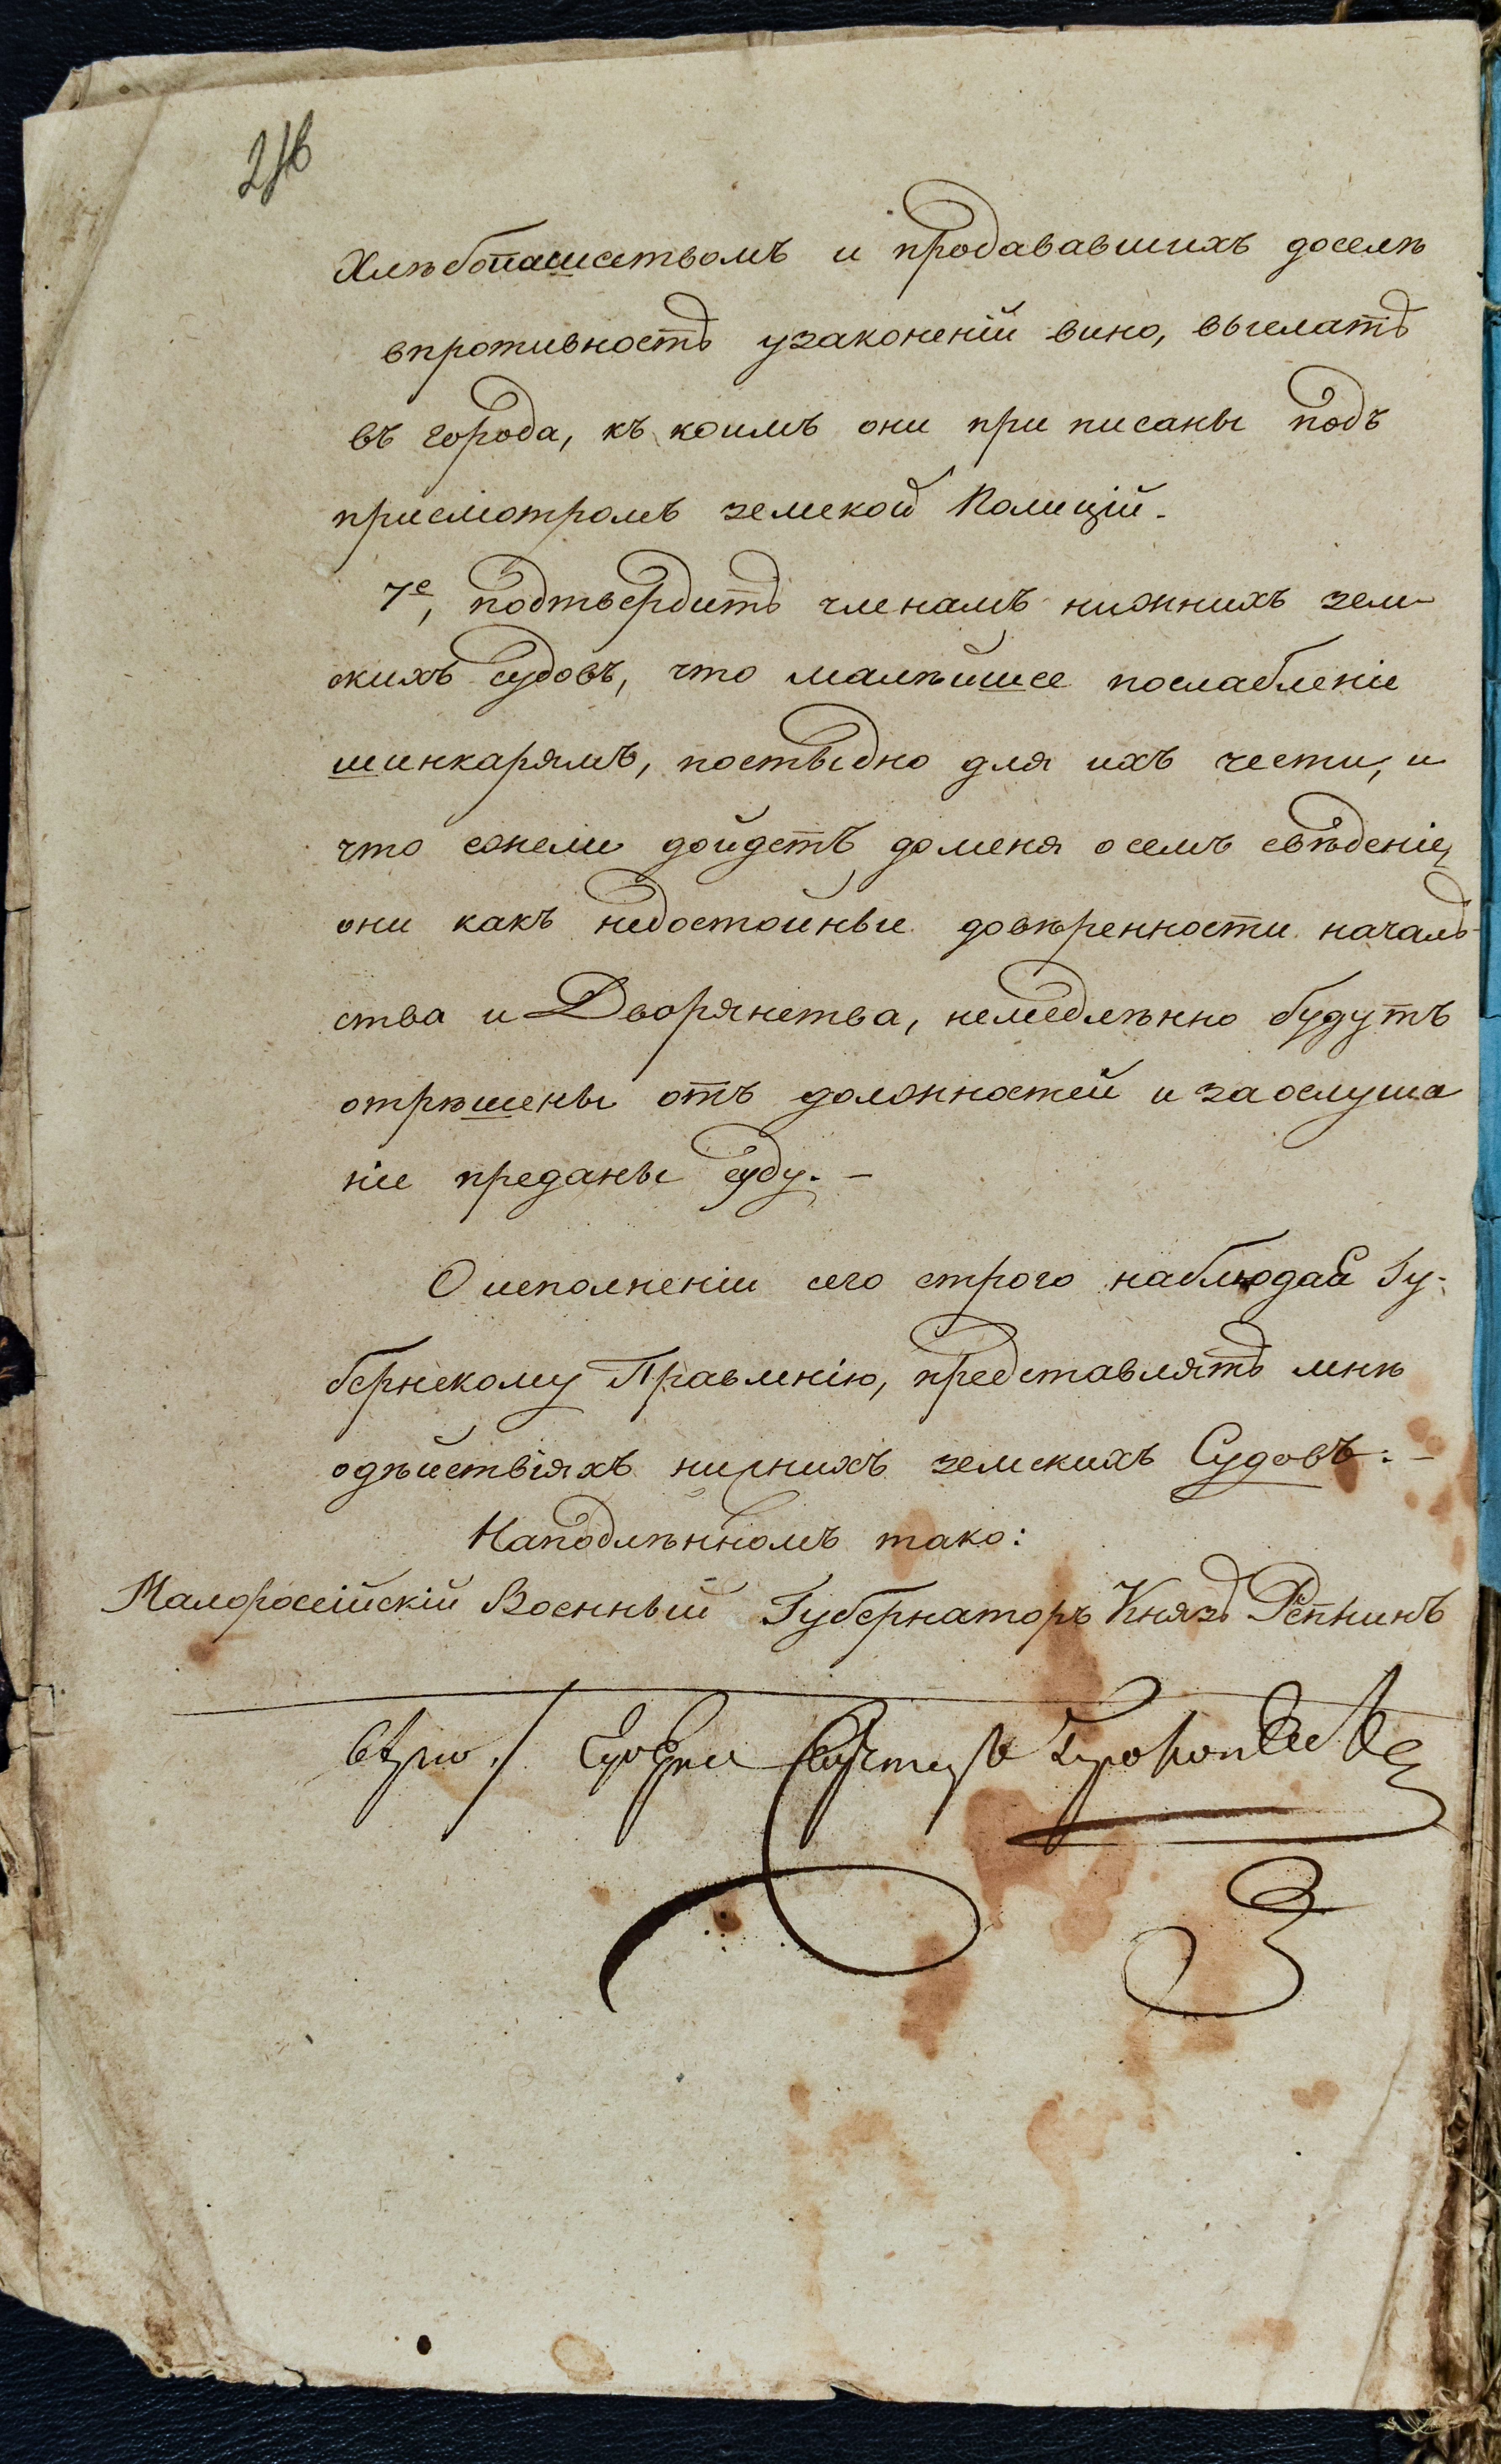 хлѣбопашествомъ и продававшихъ доселѣ
впротивность узаконеній вино, выслать
въ города, къ коимъ они при писаны подъ
присмотромъ земской Полиціи.
7е, подтвердить членамъ нижнихъ зем
скихъ судовъ, что малѣйшее послабленіе
шинкарямъ, постыдно для ихъ чести, и
что ежели дойдетъ доменя осемъ свѣденіе,
они какъ недостойные довѣренности началь
ства и Дворянства, немедлѣнно будутъ
отрѣшены отъ должностей и заослуша
ніе преданы суду. –
О исполненіи сего строго наблюдая Гу-
бернскому Правленію, представлять мнѣ
одѣйствіяхъ нижнихъ земскихъ Судовъ: –
Наподлѣнномъ тако:
Малоросійскій Военный Губернаторъ Князь Репнинъ